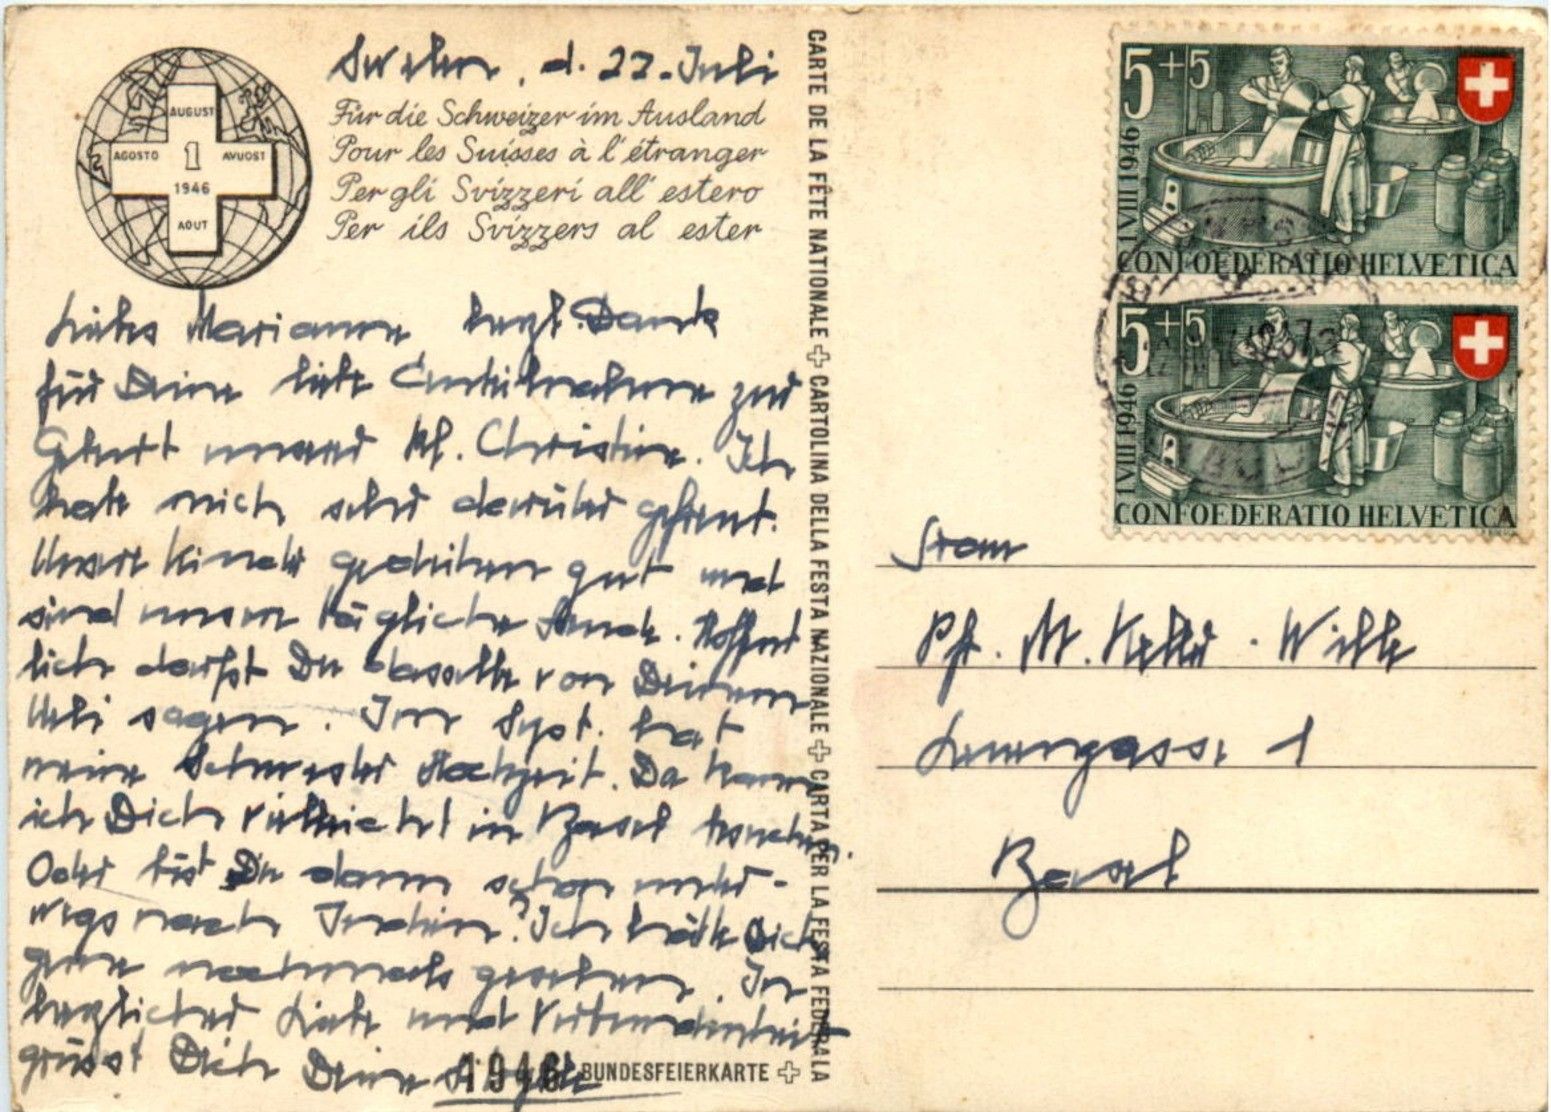 d. 22. Juli
Für die Schweizer im Ausland
Pour les Suisses à l'étranger
Per gli Svizzeri all'estero
Per ils Svizzers al ester
AUGUST
AGOSTO 1 AVUOST
1946
AOUT
Liebes Marianne herzl. Dank
für Deine liebe Anteilnahme zur
Geburt unserer kl. Christine. Ich
habe mich sehr darüber gefreut.
Unsere Kinder gedeihen gut und
sind unsere tägliche Freude. Hoffent
lich darfst Du dasselbe von Deinem
Ueli sagen. Im Sept. hat
meine Schwester Hochzeit. Da kann
ich Dich vielleicht in Basel besuchen.
Oder bist Du dann schon unter-
wegs nach Indien? Ich hätte Dich
gerne nochmals gesehen. In
herzlicher Liebe und Verbundenheit
grüsst Dich Deine
1946 BUNDESFEIERKARTE
CARTE DE LA FÊTE NATIONALE CARTOLINA DELLA FESTA NAZIONALE CARTA PER LA FESTA FEDERALA
5+5
I VIII 1946
CONFOEDERATIO HELVETICA
5+5
I VIII 1946
CONFOEDERATIO HELVETICA
Frau
Pfr. M. Keller-Wille
1
Basel